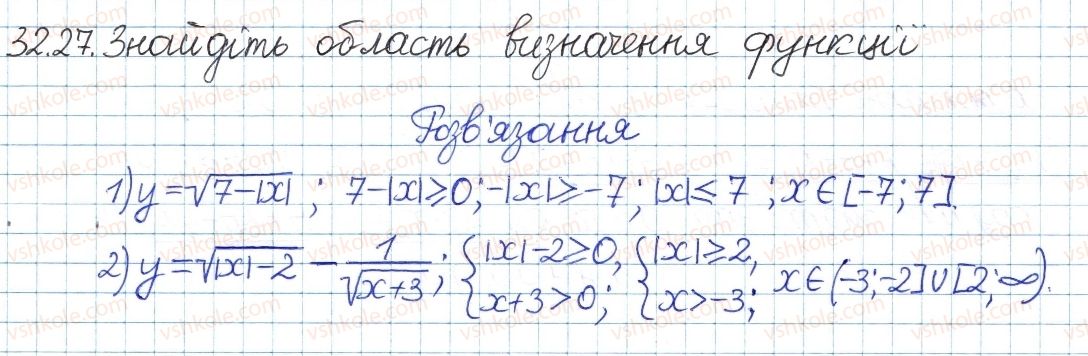 32.27. Знайдіть область визначення функції
Розв'язання
1) y = √(7-|x|) ; 7-|x| ≥ 0; -|x| ≥ -7; |x| ≤ 7 ; x ∈ [-7; 7].
2) y = √(|x|-2) - 1/√(x+3) ; { |x|-2 ≥ 0, x+3 > 0; { |x| ≥ 2, x > -3; x ∈ (-3; -2] ∪ [2; ∞).